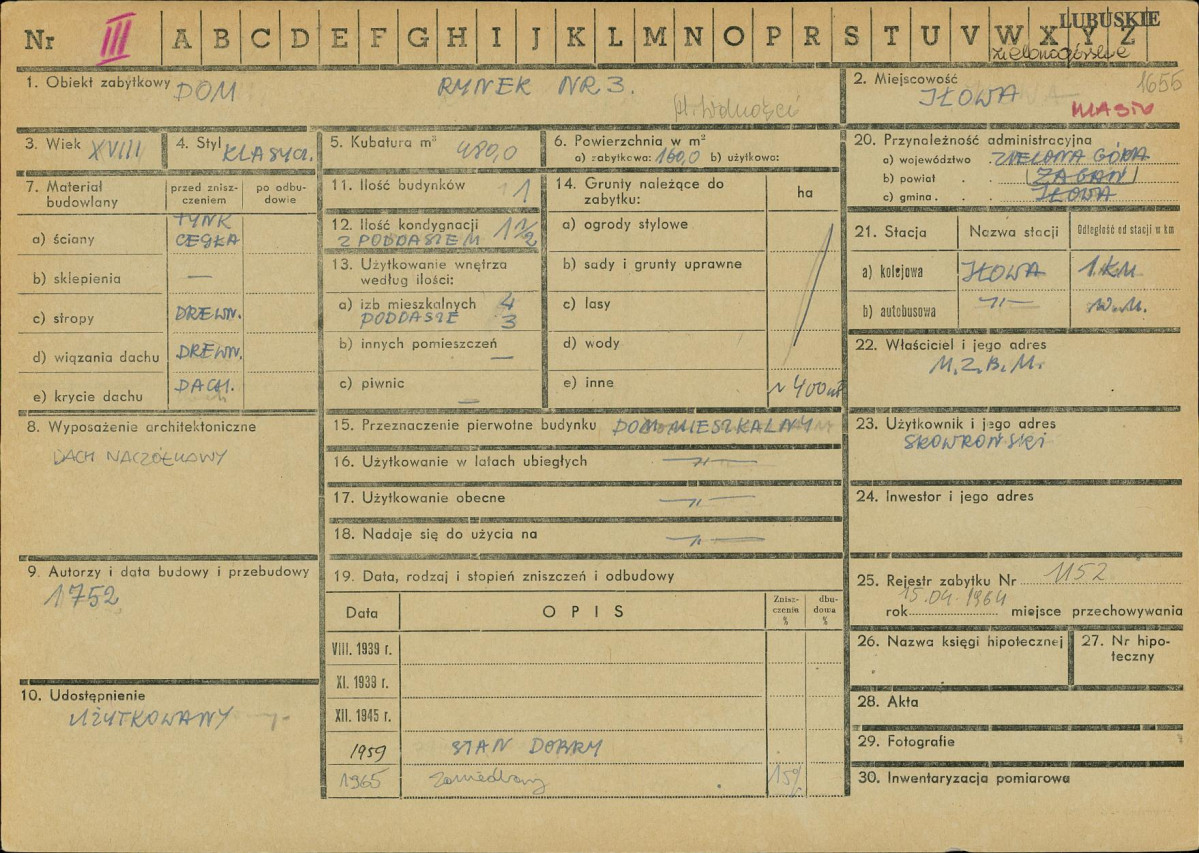 LUBUSKIE
Nr III A B C D E F G H I J K L M N O P R S T U V W X Y Z
zielonogórskie
1. Obiekt zabytkowy DOM RYNEK NR 3.
pl. Wolności
2. Miejscowość 1655
IŁOWA
MIASTO
3. Wiek XVIII
4. Styl KLASYCL.
5. Kubatura m³ 480,0
6. Powierzchnia w m²
a) zabytkowa: 160,0 b) użytkowa:
7. Materiał budowlany
przed znisz-
czeniem
po odbu-
dowie
TYNK
a) ściany CEGŁA
b) sklepienia —
c) stropy DREWN.
d) wiązania dachu DREWN.
e) krycie dachu DACH.
8. Wyposażenie architektoniczne
DACH NACZÓŁKOWY
9. Autorzy i data budowy i przebudowy
1752
10. Udostępnienie
UŻYTKOWANY
11. Ilość budynków 1
12. Ilość kondygnacji 1 1/2
Z PODDASZEM
13. Użytkowanie wnętrza
według ilości:
a) izb mieszkalnych 4
PODDASZE 3
b) innych pomieszczeń —
c) piwnic —
14. Grunty należące do
zabytku:
ha
a) ogrody stylowe
b) sady i grunty uprawne
c) lasy
d) wody
e) inne ~ 400 m²
15. Przeznaczenie pierwotne budynku DOM MIESZKALNY
16. Użytkowanie w latach ubiegłych —"—
17. Użytkowanie obecne —"—
18. Nadaje się do użycia na —"—
19. Data, rodzaj i stopień zniszczeń i odbudowy
Data OPIS
Znisz-
czenia
%
dbu-
dowa
%
VIII. 1939 r.
XI. 1939 r.
XII. 1945 r.
1959 STAN DOBRY
1965 zaniedbany 15%
20. Przynależność administracyjna
a) województwo ZIELONA GÓRA
b) powiat ŻAGAŃ
c) gmina IŁOWA
21. Stacja Nazwa stacji Odległość od stacji w km
a) kolejowa IŁOWA 1 KM
b) autobusowa —"—
22. Właściciel i jego adres
M.Z.B.M.
23. Użytkownik i jego adres
SKOWROŃSKI
24. Inwestor i jego adres
25. Rejestr zabytku Nr 1152
rok 15.04.1964 miejsce przechowywania
26. Nazwa księgi hipotecznej
27. Nr hipo-
teczny
28. Akta
29. Fotografie
30. Inwentaryzacja pomiarowa